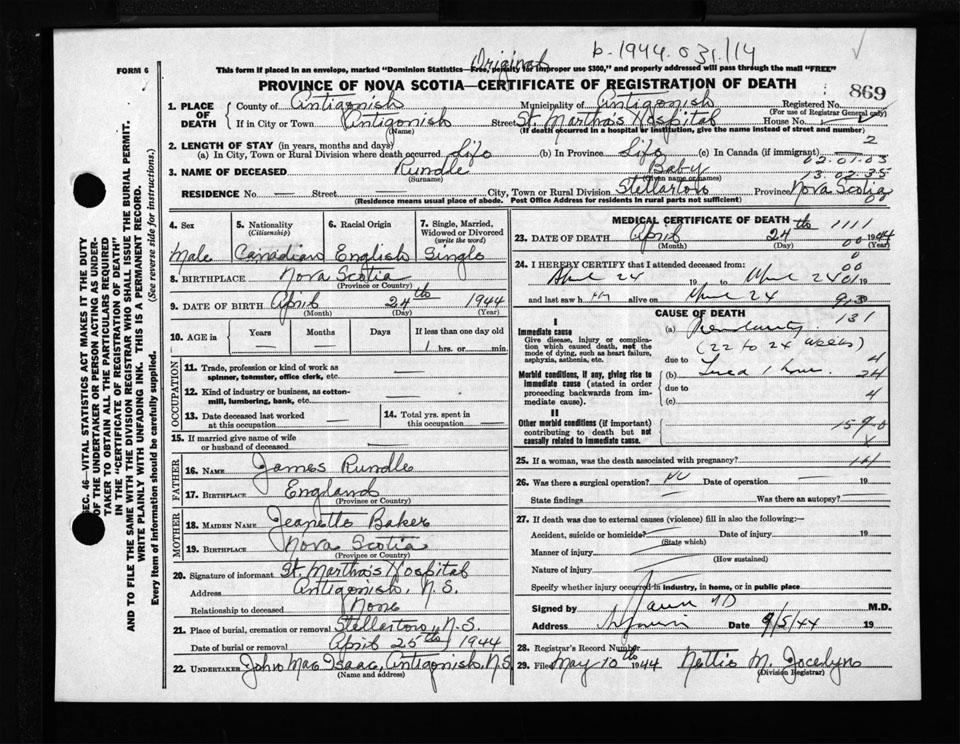 Original b-1944.031114
FORM 6
This form if placed in an envelope, marked "Dominion Statistics—Free, penalty for improper use $300," and properly addressed will pass through the mail "FREE"
PROVINCE OF NOVA SCOTIA—CERTIFICATE OF REGISTRATION OF DEATH
869
1. PLACE OF DEATH County of Antigonish Municipality of Antigonish Registered No.
(For use of Registrar General only)
If in City or Town Antigonish Street St. Martha's Hospital House No.
(Name) (If death occurred in a hospital or institution, give the name instead of street and number)
2. LENGTH OF STAY (in years, months and days) 2
(a) In City, Town or Rural Division where death occurred Life (b) In Province Life (c) In Canada (if immigrant)
02.01.03
3. NAME OF DECEASED Rundle Baby 13.02.35
(Surname) (Given name or names)
RESIDENCE No. — Street — City, Town or Rural Division Stellarton Province Nova Scotia
(Residence means usual place of abode. Post Office Address for residents in rural parts not sufficient)
SEC. 46—VITAL STATISTICS ACT MAKES IT THE DUTY
OF THE UNDERTAKER OR PERSON ACTING AS UNDER-
TAKER TO OBTAIN ALL THE PARTICULARS REQUIRED
IN THE "CERTIFICATE OF REGISTRATION OF DEATH"
AND TO FILE THE SAME WITH THE DIVISION REGISTRAR WHO SHALL ISSUE THE BURIAL PERMIT.
WRITE PLAINLY WITH UNFADING INK. THIS IS A PERMANENT RECORD.
Every item of information should be carefully supplied. (See reverse side for instructions.)
4. Sex 5. Nationality (Citizenship) 6. Racial Origin 7. Single, Married, Widowed or Divorced (write the word)
Male Canadian English Single
8. BIRTHPLACE Nova Scotia
(Province or Country)
9. DATE OF BIRTH April 24th 1944
(Month) (Day) (Year)
10. AGE in Years Months Days If less than one day old
1 hrs. or min.
OCCUPATION
11. Trade, profession or kind of work as spinner, teamster, office clerk, etc. —
12. Kind of industry or business, as cotton-mill, lumbering, bank, etc. —
13. Date deceased last worked at this occupation — 14. Total yrs. spent in this occupation —
15. If married give name of wife or husband of deceased —
FATHER
16. NAME James Rundle
17. BIRTHPLACE England
(Province or Country)
MOTHER
18. MAIDEN NAME Jeanette Baker
19. BIRTHPLACE Nova Scotia
(Province or Country)
20. Signature of informant St. Martha's Hospital
Address Antigonish, N.S.
Relationship to deceased None
21. Place of burial, cremation or removal Stellarton, N.S.
Date of burial or removal April 25th, 1944
22. UNDERTAKER John Mac Isaac, Antigonish, N.S.
(Name and address)
MEDICAL CERTIFICATE OF DEATH
1111
23. DATE OF DEATH April 24th 1944
(Month) (Day) (Year)
24. I HEREBY CERTIFY that I attended deceased from:
April 24 19 to April 24 19
and last saw h im alive on April 24
CAUSE OF DEATH
131
I
Immediate cause (a) Prematurity
Give disease, injury or complication which caused death, not the mode of dying, such as heart failure, asphyxia, asthenia, etc.
(22 to 24 weeks)
due to 4
Morbid conditions, if any, giving rise to immediate cause (stated in order proceeding backwards from immediate cause). (b) Lived 1 hour 24
due to
(c) 4
II
Other morbid conditions (if important) contributing to death but not causally related to immediate cause.
25. If a woman, was the death associated with pregnancy? 14
26. Was there a surgical operation? no Date of operation — 19
State findings Was there an autopsy?
27. If death was due to external causes (violence) fill in also the following:—
Accident, suicide or homicide? Date of injury 19
(State which)
Manner of injury
(How sustained)
Nature of injury
Specify whether injury occurred in industry, in home, or in public place
Signed by M.D.
Address Date 9/5/44 19
28. Registrar's Record Number
29. Filed May 10th 1944 Nettie M. Jocelyn
(Division Registrar)